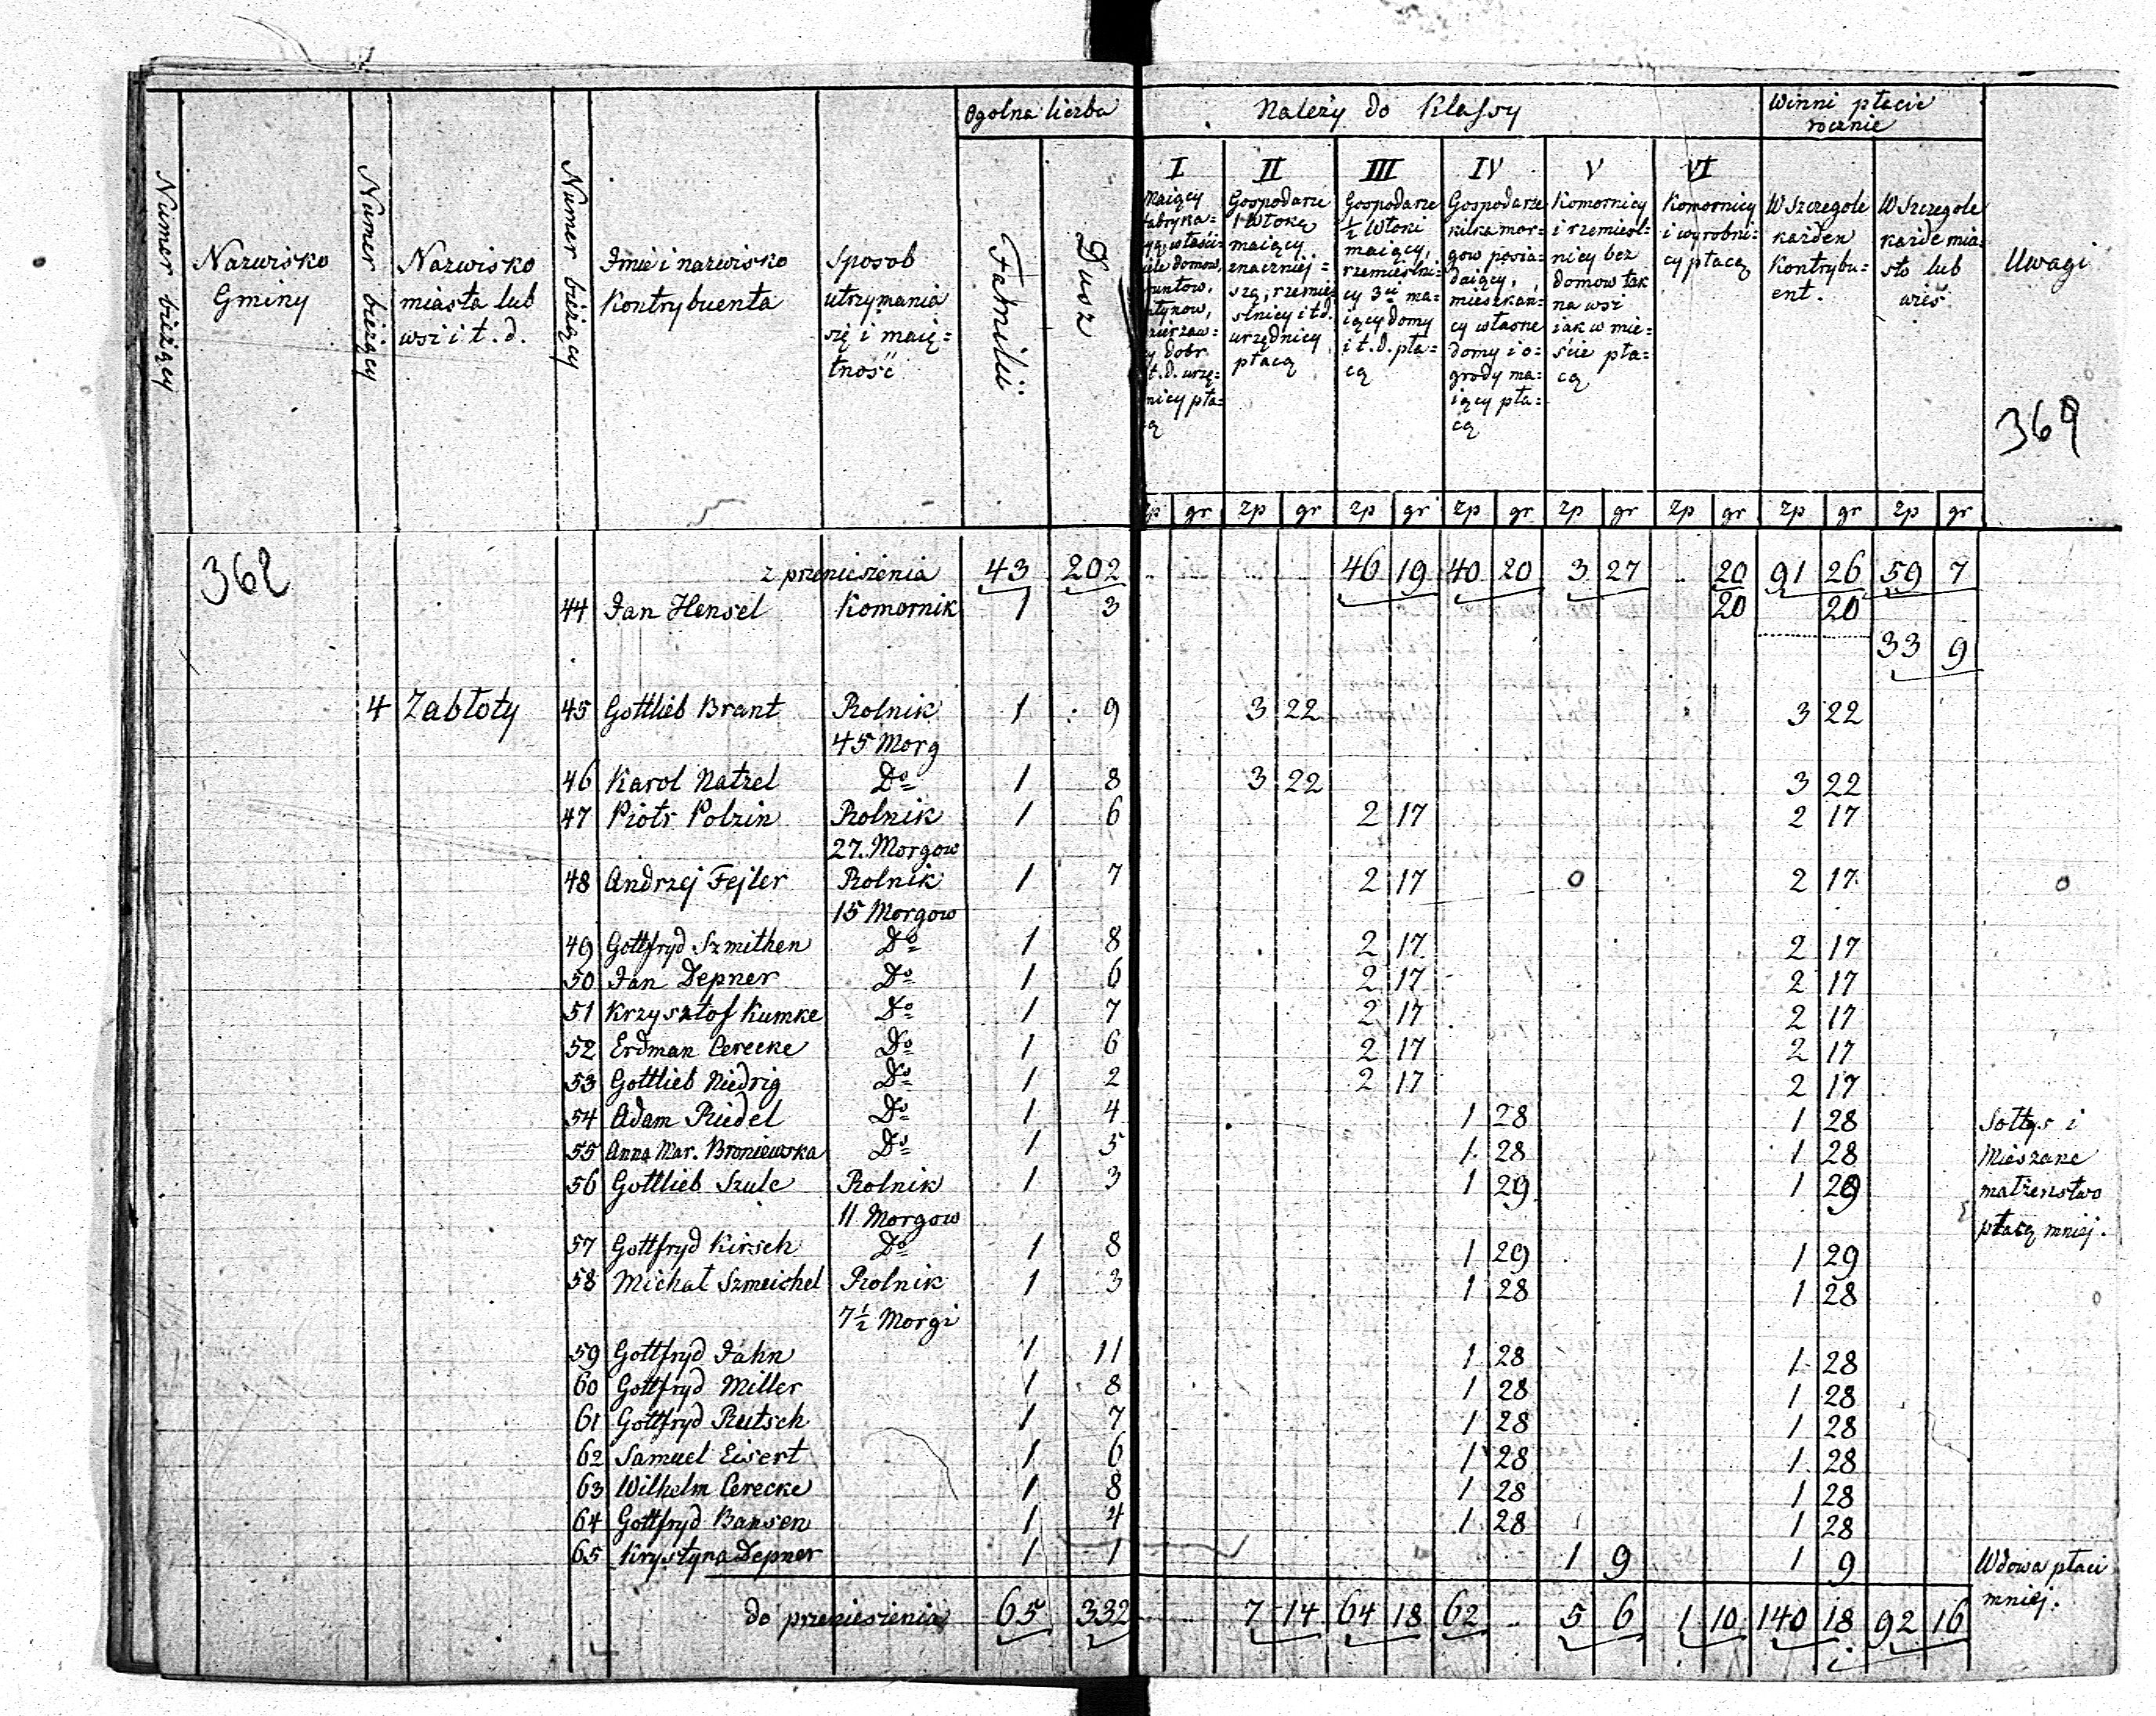 Ogolna liczba
Należy do Klassy
Winni płacić
rocznie
Numer bieżący
Nazwisko
Gminy
Numer bieżący
Nazwisko
miasta lub
wsi i t. d.
Numer bieżący
Imie i nazwisko
Kontrybuenta
Sposob
utrzymania
się i maię=
tność
Familii
Dusz
I
II
Gospodarze
1 Włokę
maiący
znaczniej=
szą, rzemie
slnicy i t d.
urzędnicy
płacą
III
Gospodarze
½ Włoki
maiący,
rzemieślni=
cy 3ci ma=
iący domy
i t. d. pła=
cą
IV
Gospodarze
kilka mor=
gow posia=
daiący,
mieszkań=
cy własne
domy i o=
grody ma=
iący pła=
cą
V
Komornicy
i rzemieśl=
nicy bez
domow tak
na wsi
iak w mie=
ście pła=
cą
VI
Komornicy
i wyrobni=
cy płacą
W Szczegole
każden
Kontrybu=
ent.
W Szczegole
każde mia=
sto lub
wieś
Uwagi
369
zp gr zp gr zp gr zp gr zp gr zp gr zp gr zp gr
362 z przeniesienia 43 202 46 19 40 20 3 27 .. 20 91 26 59 7
44 Jan Hensel Komornik 1 3 20 20
33 9
4 Zabłoty 45 Gottlieb Brant Rolnik 1 9 3 22 3 22
45 Morg
46 Karol Natzel Do 1 8 3 22 3 22
47 Piotr Polzin Rolnik 1 6 2 17 2 17
27. Morgow
48 Andrzej Fejler Rolnik 1 7 2 17 2 17
15 Morgow
49 Gottfryd Szmithen Do 1 8 2 17 2 17
50 Jan Depner Do 1 6 2 17 2 17
51 Krzysztof Kumke Do 1 7 2 17 2 17
52 Erdman Cerecke Do 1 6 2 17 2 17
53 Gottlieb Niedrig Do 1 2 2 17 2 17
54 Adam Riedel Do 1 4 1 28 1 28 Sołtys i
55 Anna Mar. Broniewska Do 1 5 1 28 1 28 Mieszane
56 Gottlieb Szulc Rolnik 1 3 1 29 1 29 małżenstwo
11 Morgow płacą mniej.
57 Gottfryd Kirsch Do 1 8 1 29 1 29
58 Michał Szmeichel Rolnik 1 3 1 28 1 28
7½ Morgi
59 Gottfryd Jahn 1 11 1 28 1 28
60 Gottfryd Miller 1 8 1 28 1 28
61 Gottfryd Rutsch 1 7 1 28 1 28
62 Samuel Eisert 1 6 1 28 1 28
63 Wilhelm Cerecke 1 8 1 28 1 28
64 Gottfryd Bansen 1 4 1 28 1 28
65 Krystyna Depner 1 1 1 9 1 9 Wdowa płaci
mniej.
do przeniesienia 65 332 7 14 64 18 62 .. 5 6 1 10 140 18 92 16